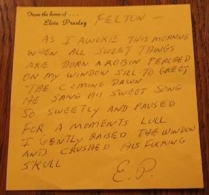 From the home of...
Elvis Presley
FELTON—
AS I AWOKE THIS MORNING
WHEN ALL SWEET THINGS
ARE BORN A ROBIN PERCHED
ON MY WINDOW SILL TO GREET
THE COMING DAWN
HE SANG HIS SWEET SONG
SO SWEETLY AND PAUSED
FOR A MOMENTS LULL
I GENTLY RAISED THE WINDOW
AND CRUSHED HIS FUCKING
SKULL
E.P.